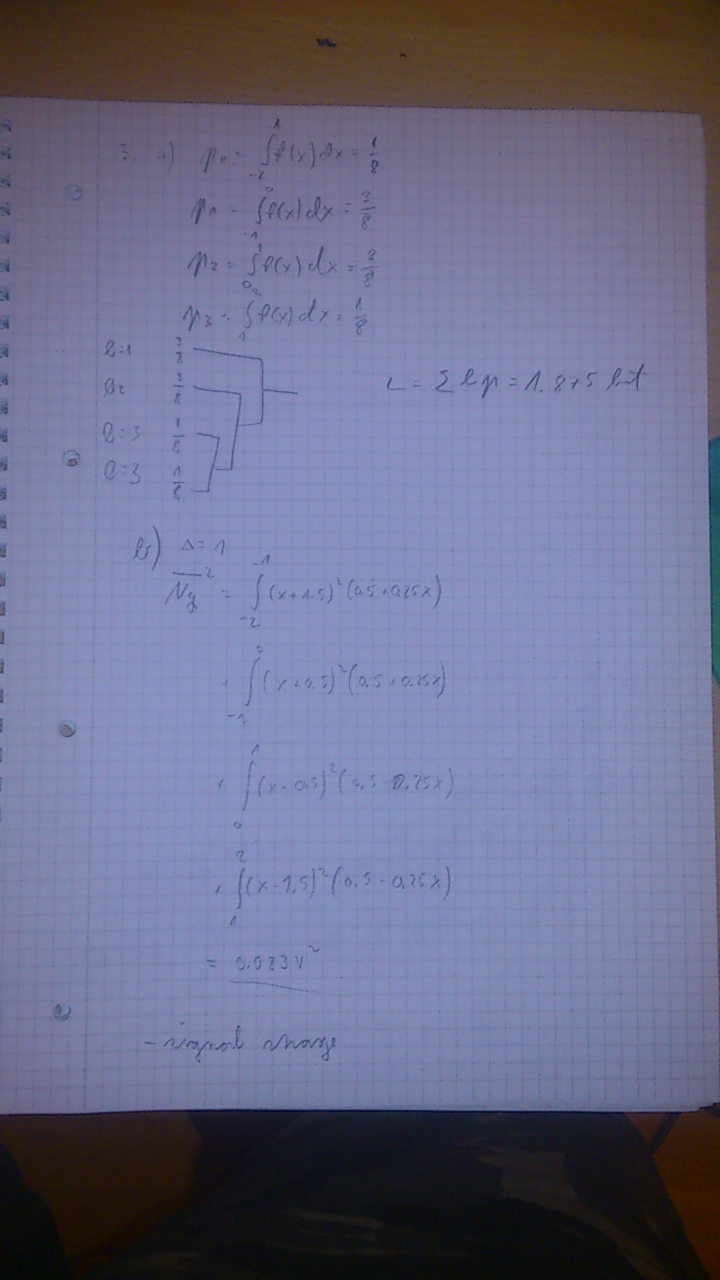 3. a) p₀ = ∫₋₂¹ f(x) dx = 1/8
p₁ = ∫₋₁⁰ f(x) dx = 3/8
p₂ = ∫₀¹ f(x) dx = 3/8
p₃ = ∫₁² f(x) dx = 1/8
l=1 3/8
l=2 3/8
l=3 1/8
l=3 1/8
L = Σ l p = 1.875 bit
b) Δ=1
N_q² = ∫₋₂⁻¹ (x+1.5)² (0.5+0.25x)
+ ∫₋₁⁰ (x+0.5)² (0.5+0.25x)
+ ∫₀¹ (x-0.5)² (0.5-0.25x)
+ ∫₁² (x-1.5)² (0.5-0.25x)
= 0.083 V²
- signal